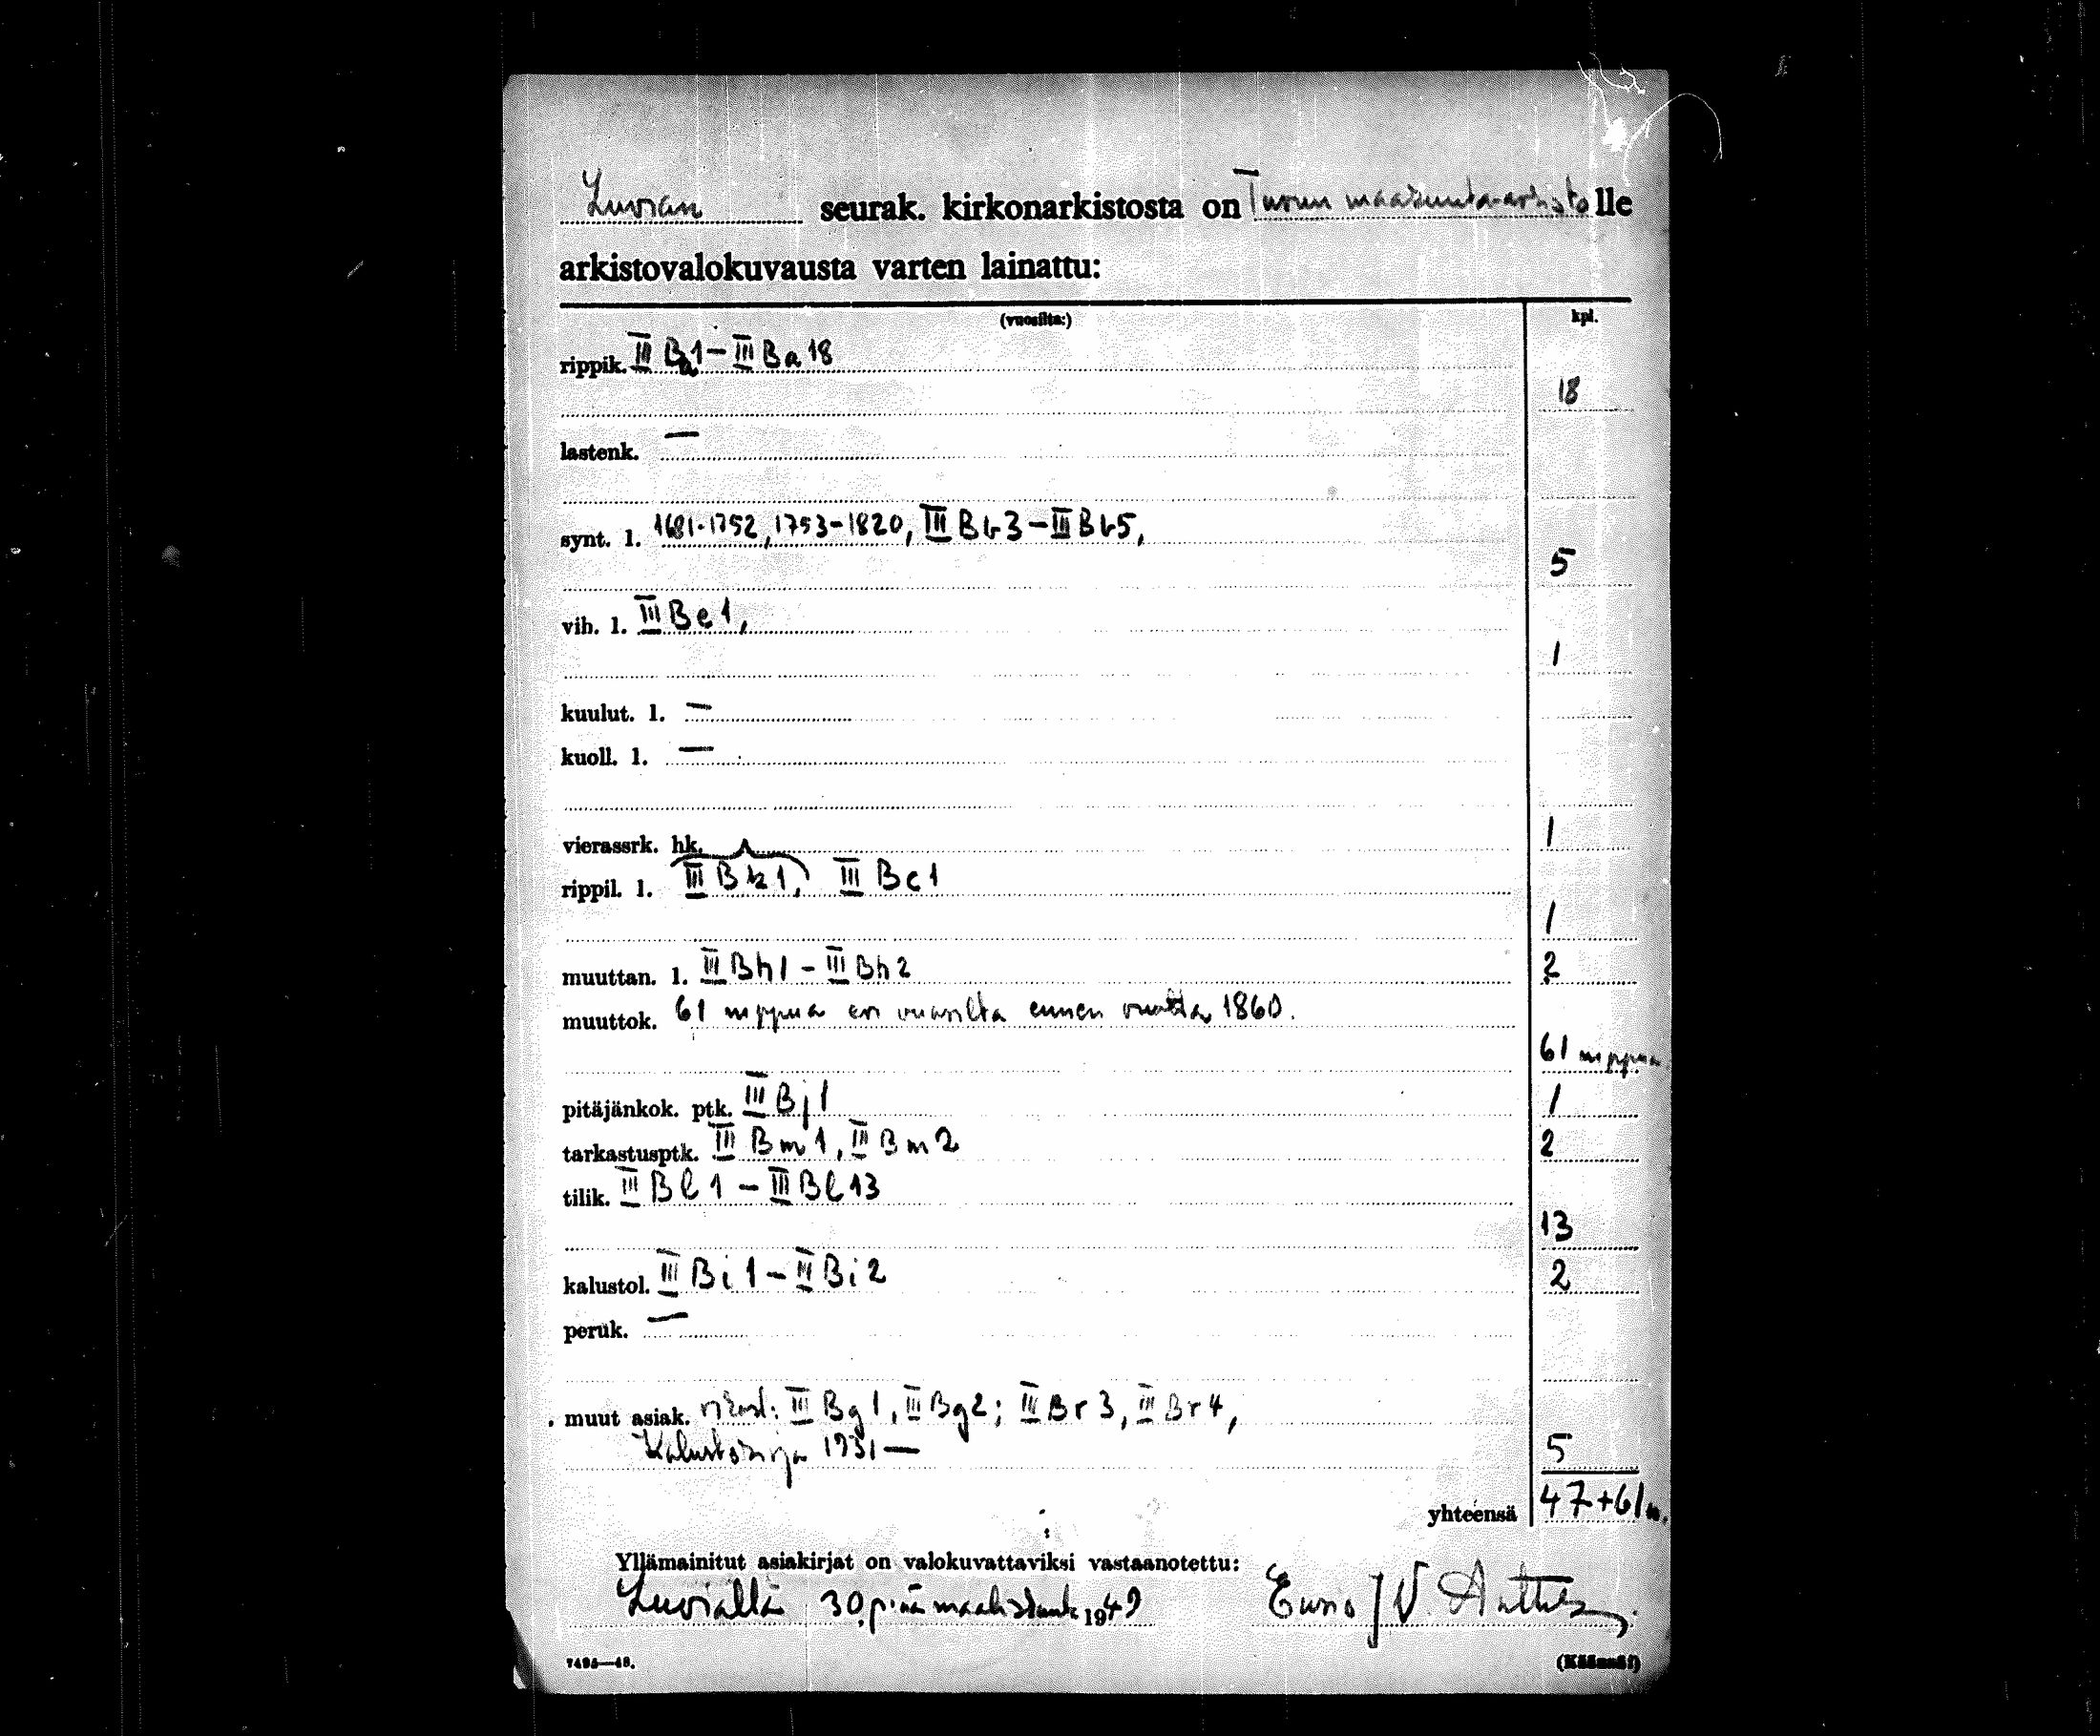 Luvian seurak. kirkonarkistosta on Turun maakunta-arkisto lle
arkistovalokuvausta varten lainattu:
(vuosilta:) kpl.
rippik. III Ba1 – III Ba 18
18
lastenk. —
synt. l. 1681-1752, 1753-1820, III Bb 3 – III Bb 5,
5
vih. l. III Be 1,
1
kuulut. l. —
kuoll. l. —
vierassrk. hk. 1
rippil. l. III Bk 1, III Bc 1
1
muuttan. l. III Bh 1 - III Bh 2 2
muuttok. 61 nippua eri vuosilta ennen vuotta 1860.
61 nippua
pitäjänkok. ptk. III Bj 1 1
tarkastusptk. III Bm 1, III Bm 2 2
tilik. III Bl 1 – III Bl 13
13
kalustol. III Bi 1 – III Bi 2 2
peruk. —
muut asiak. III Bg 1, III Bg 2; III Br 3, III Br 4,
Kalustokirja 1931 — 5
yhteensä 47+61 n.
Yllämainitut asiakirjat on valokuvattaviksi vastaanotettu:
Luvialla 30 p:nä maalisk 1949 V.
7495—48. (Käännä!)